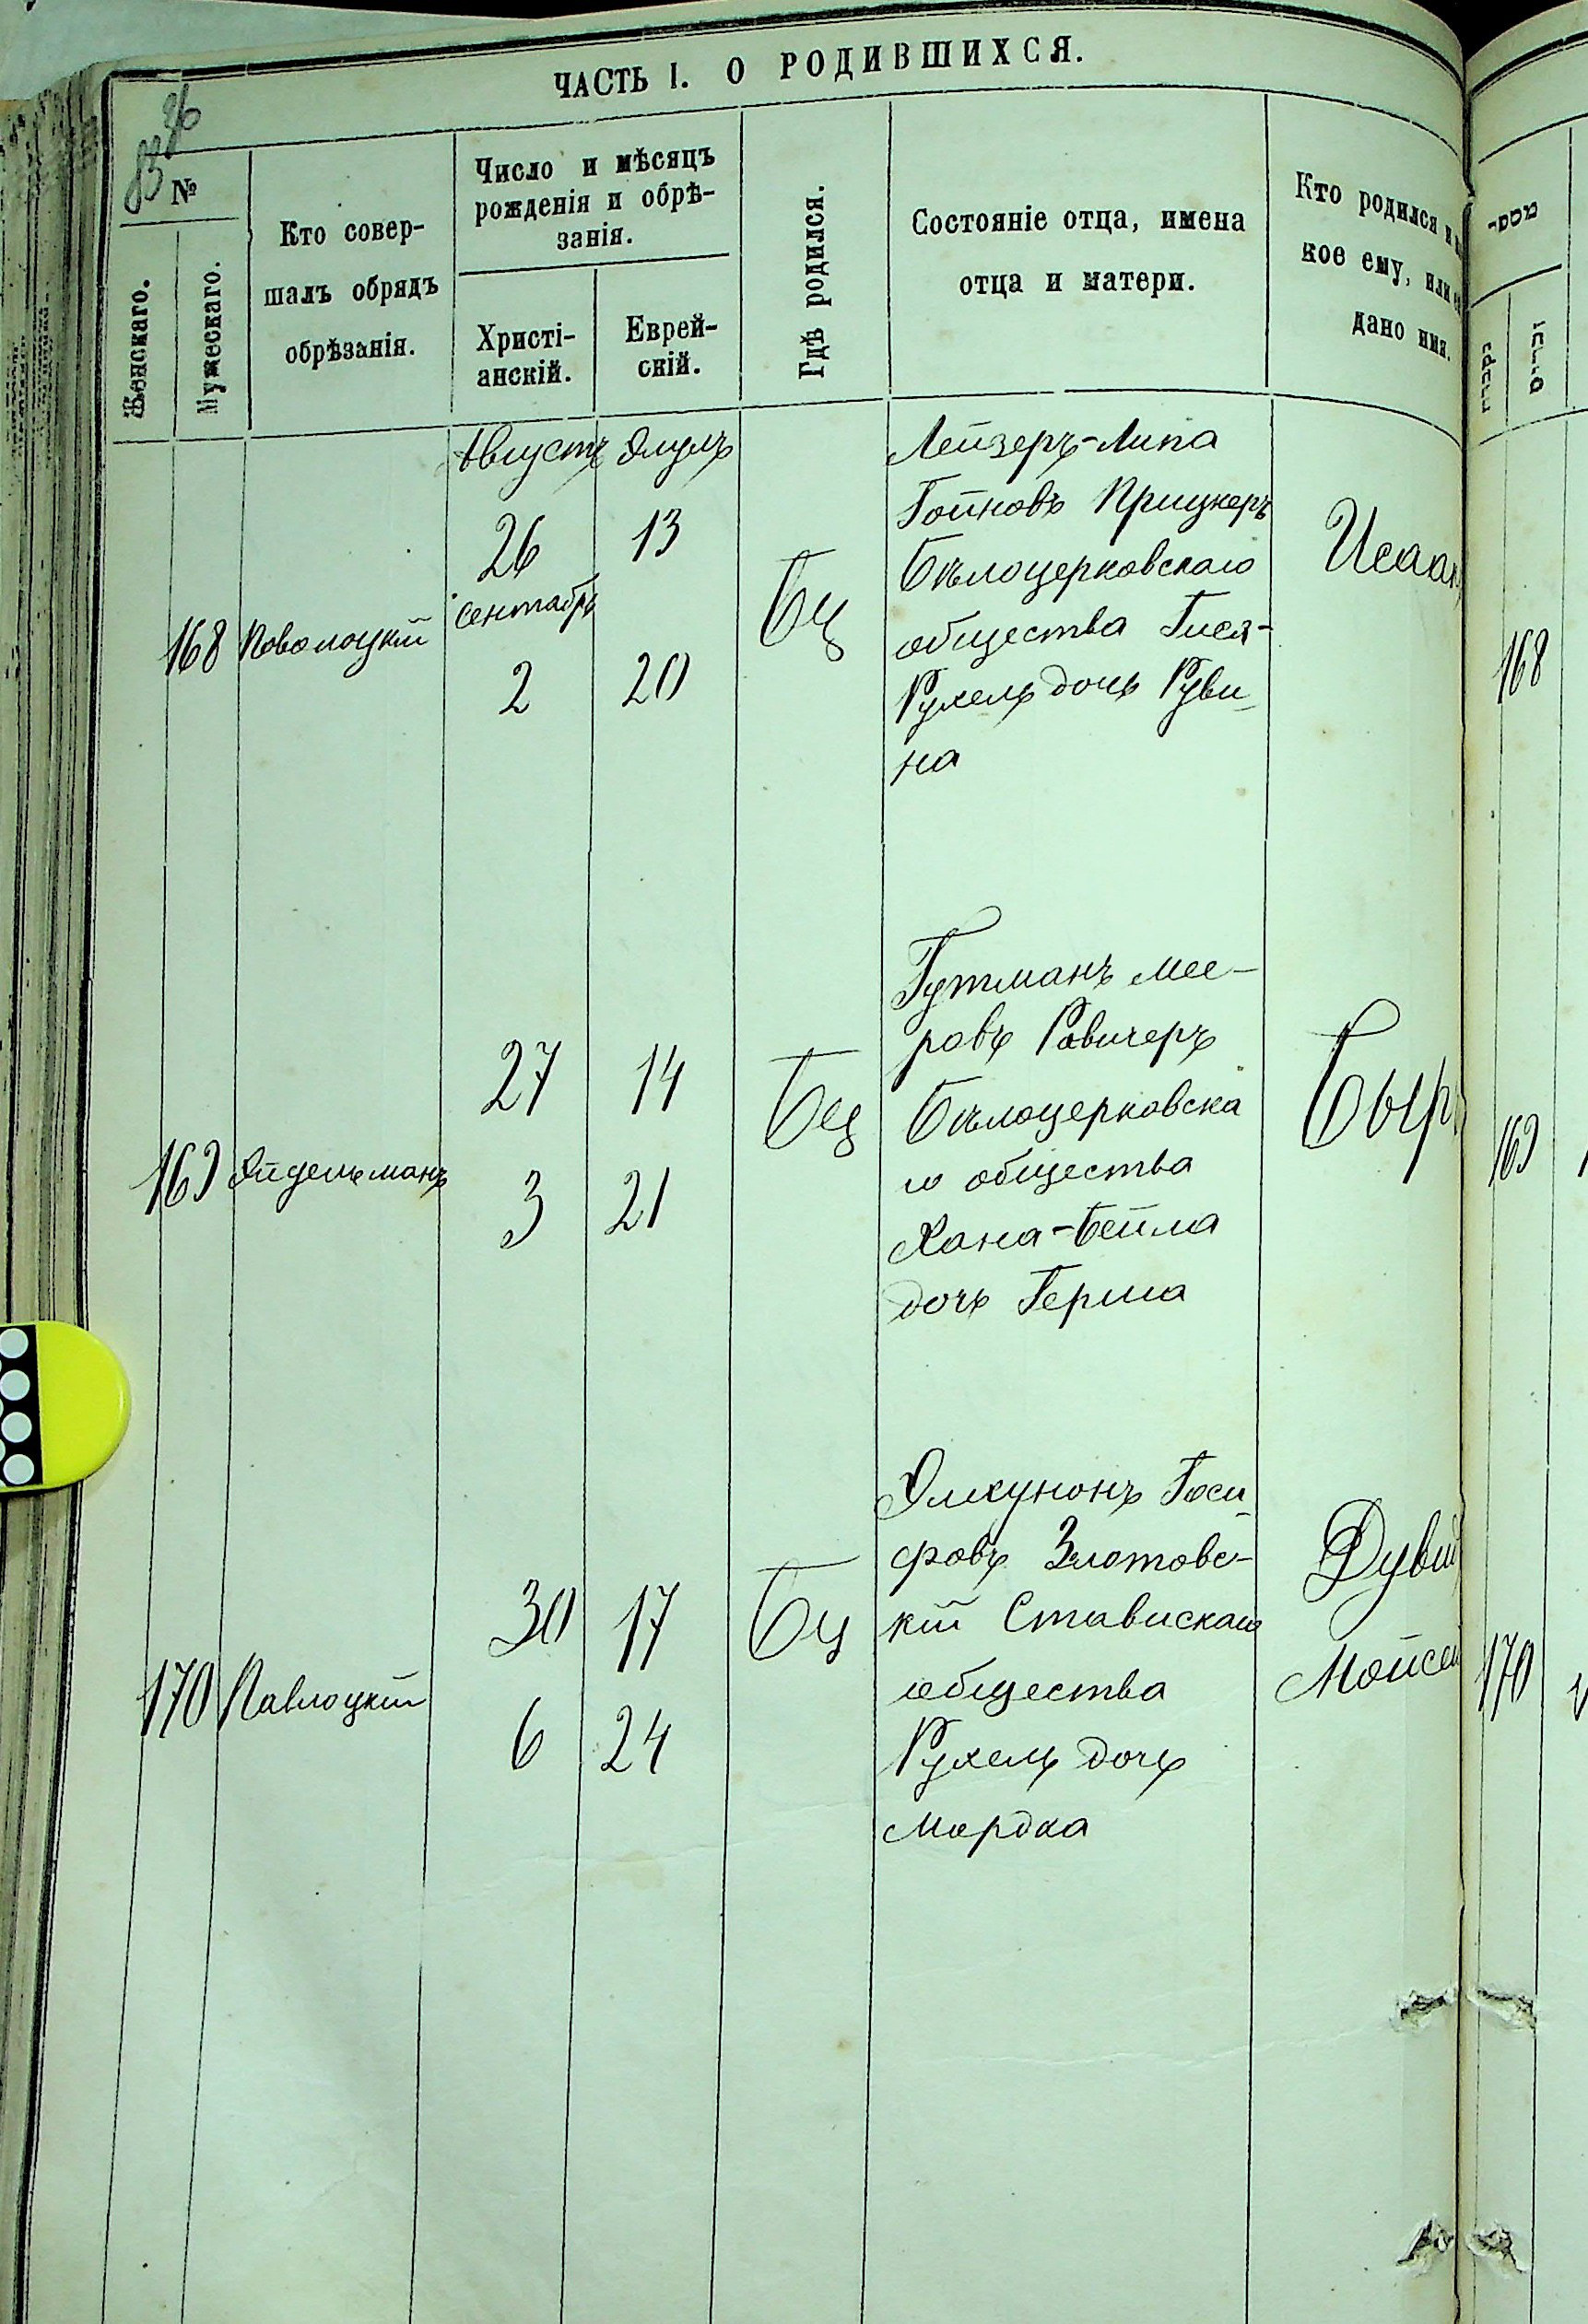 ЧАСТЬ I. О РОДИВШИХСЯ.
83
№
Женскаго.
Мужескаго.
Кто совер-
шалъ обрядъ
обрѣзанія.
Число и мѣсяцъ
рожденія и обрѣ-
занія.
Христі-
анскій.
Еврей-
скій.
Гдѣ родился.
Состояніе отца, имена
отца и матери.
Кто родился и
кое ему, или
дано имя.
168
Поволоцкій
Августъ
26
сентабрь
2
Элулъ
13
20
Бц
Лейзеръ-Липа
Гойновъ Прицкеръ
Бѣлоцерковскаго
общества Гися-
Рухель дочь Руви
на
Исаак
169
Эйдельманъ
27
3
14
21
Бц
Гутманъ Мее-
ровъ Равичеръ
Бѣлоцерковска
го общества
Хана-Бейла
дочь Герша
Быръ
170
Павлоцкій
30
6
17
24
Бц
Элкунонъ Госи
фовъ Злотовс-
кій Ставискаго
общества
Рухель дочь
Мордка
Дувид
Мойсей
מספר
נקבות
זכרים
168
169
170